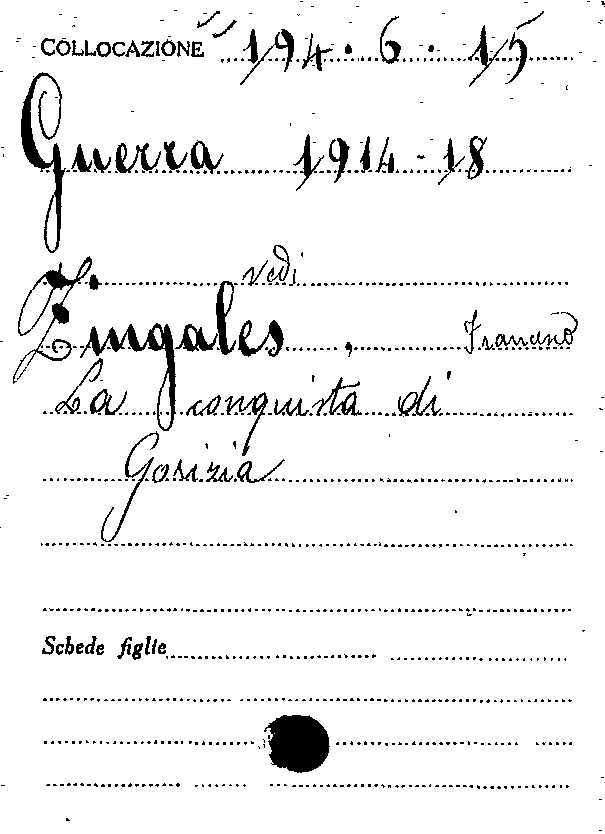 COLLOCAZIONE 194.6.15
Guerra 1914-18
vedi
Zingales, Francesco
La conquista di
Gorizia
Schede figlie